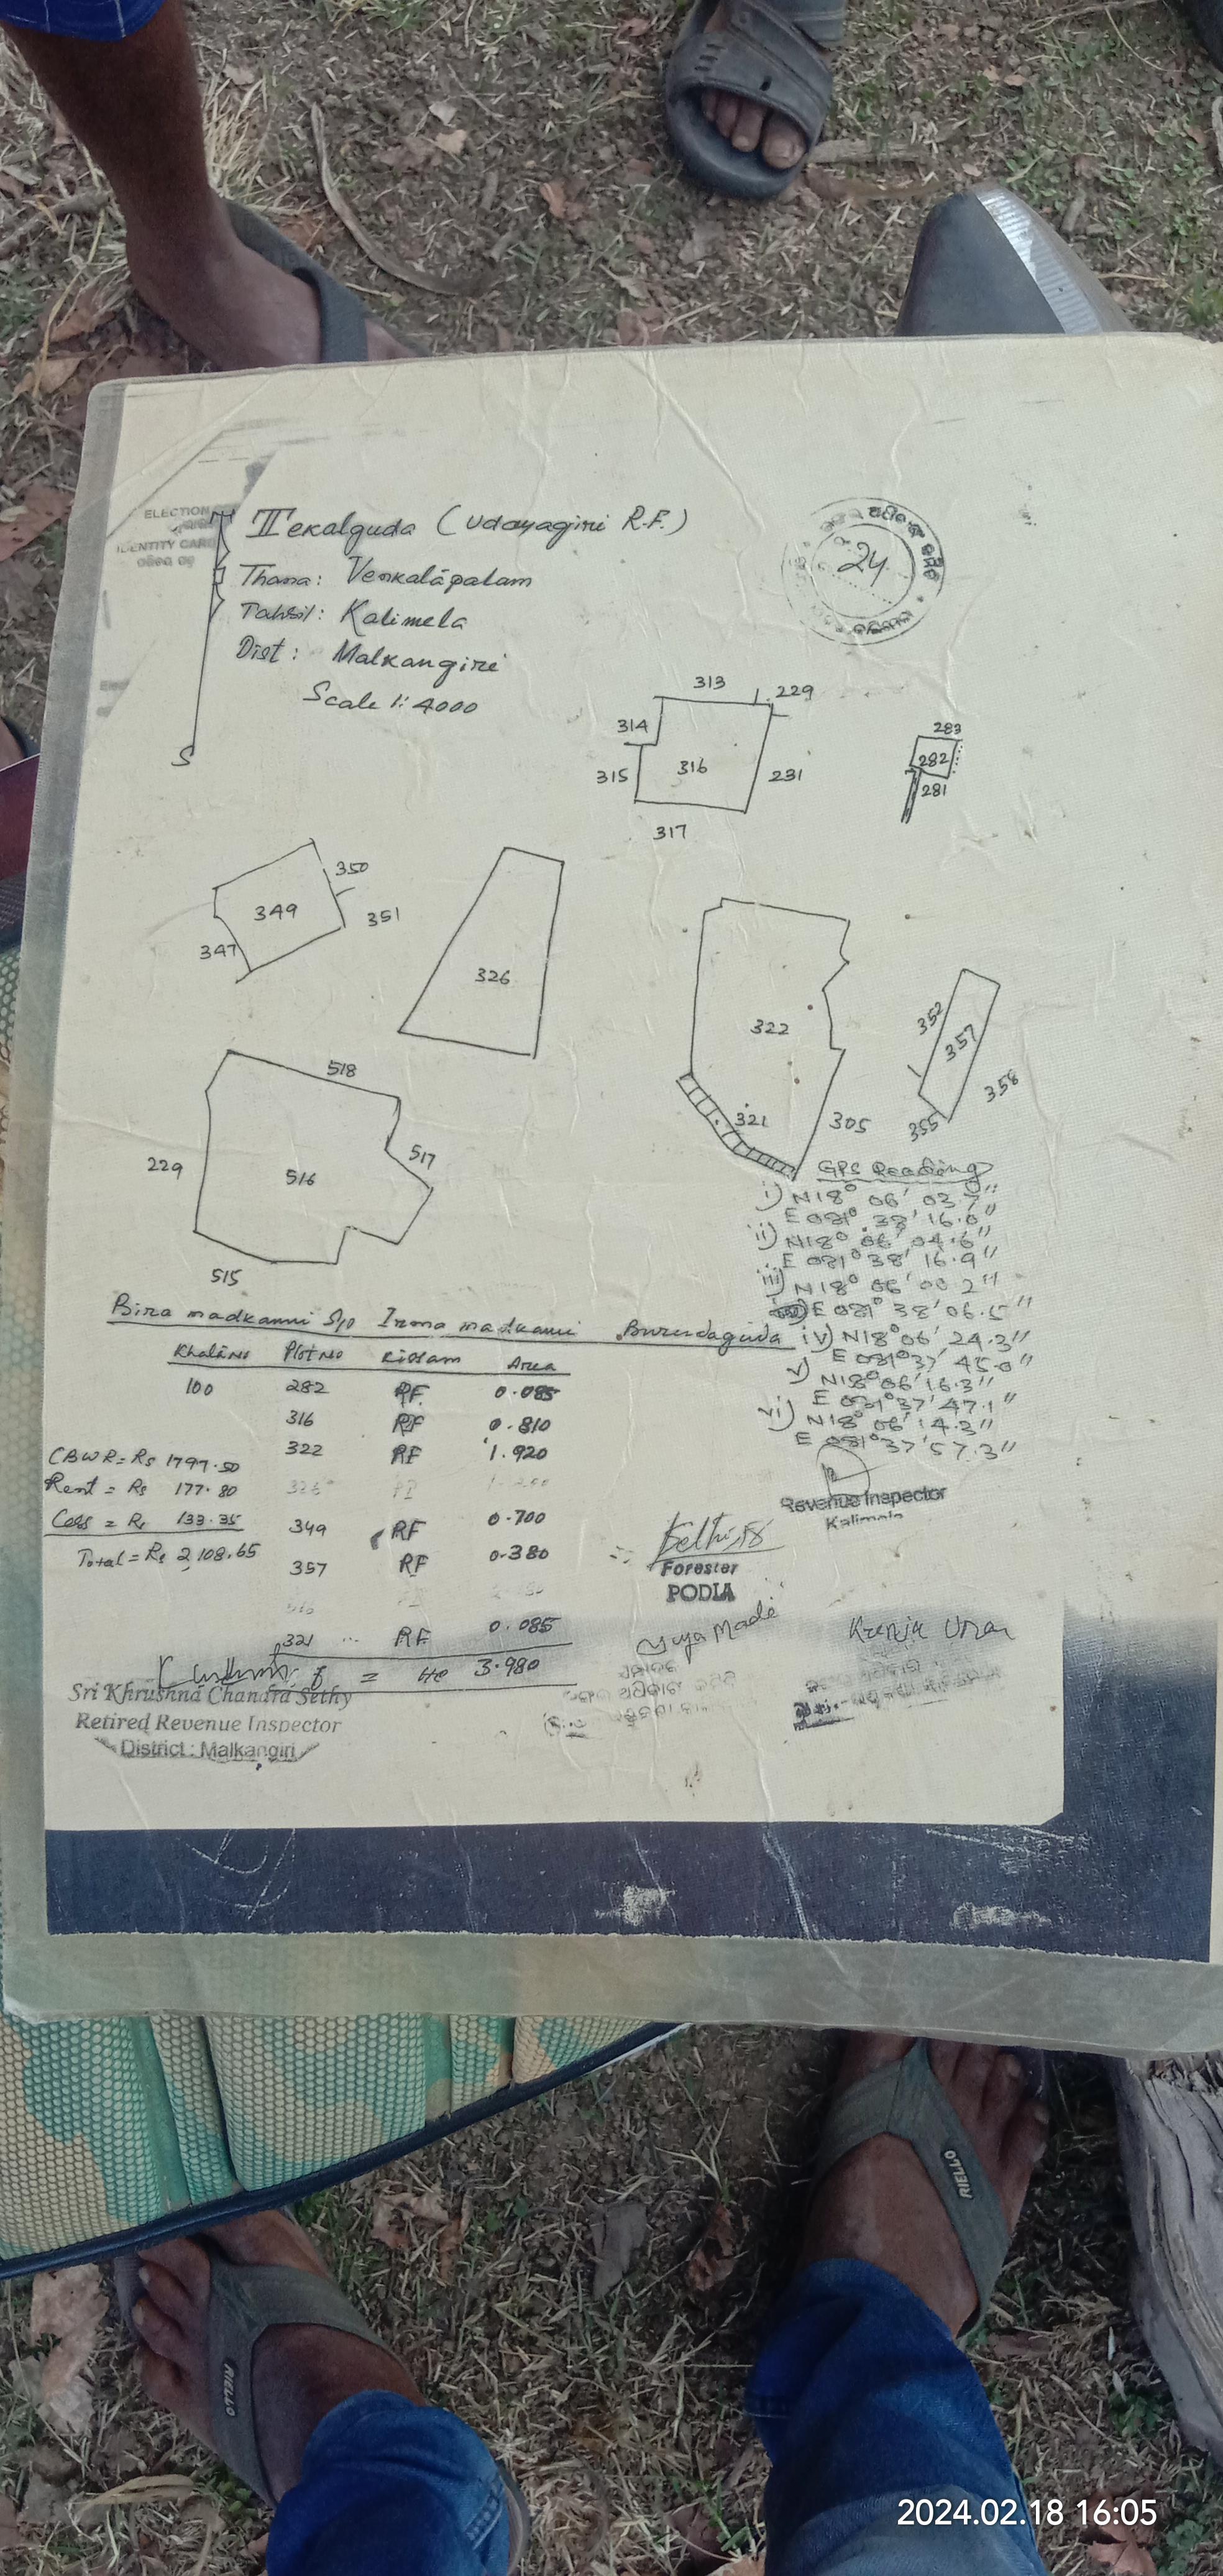 ELECTION
IDENTITY CARD
Tekalguda (Udayagiri R.F.)
24
Thana: Venkatapalam
Tahsil: Kalimela
Dist: Malkangiri
Scale 1:4000
S
313
229
314
316
315
231
317
283
282
281
350
349
351
347
326
322
352
357
358
321
305
355
518
517
229
516
515
GPS Reading
i) N18° 06' 03.7"
E 081° 38' 16.0"
ii) N18° 06' 04.6"
E 081° 38' 16.9"
iii) N18° 06' 00.2"
E 081° 38' 06.5"
iv) N18° 06' 24.3"
E 081° 37' 45.0"
v) N18° 06' 16.3"
E 081° 37' 47.1"
vi) N18° 06' 14.3"
E 081° 37' 57.3"
Bira madkami S/o Irma madkami Burudaguda
Khata No Plot No Kissam Area
100 282 RF 0.085
316 RF 0.810
322 RF 1.920
326
349 RF 0.700
357 RF 0.380
321 ... RF 0.085
= He 3.980
CBWR = Rs 1797.50
Rent = Rs 177.80
Cess = Rs 133.35
Total = Rs 2,108.65
Revenue Inspector
Kalimela
Forester
PODIA
Sri Khrushna Chandra Sethy
Retired Revenue Inspector
District : Malkangiri
RIELLO
RIELLO
2024.02.18 16:05